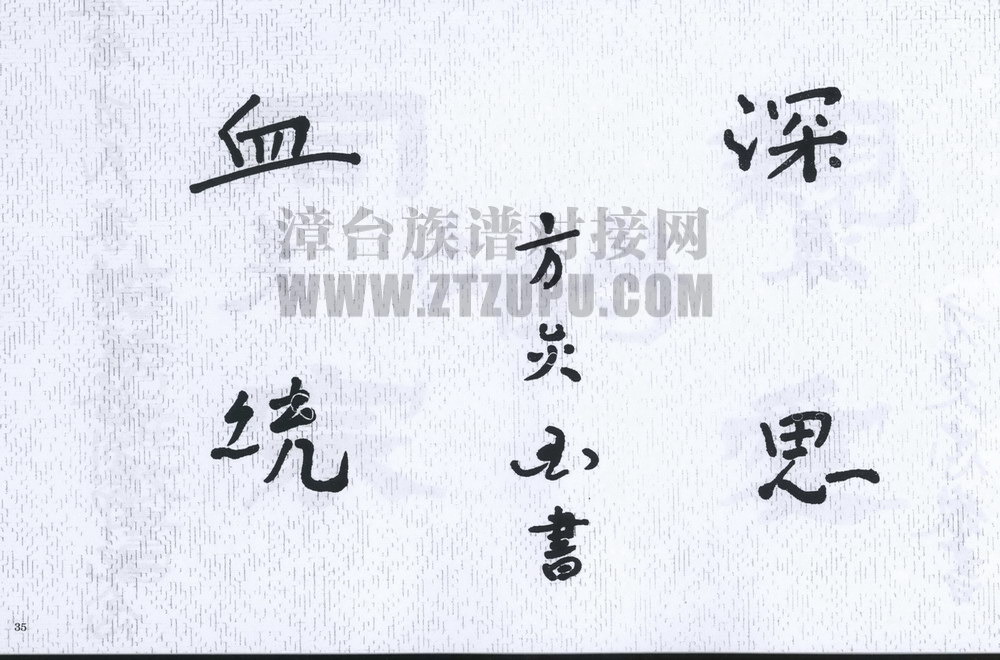 深思
方炎書
血統
漳台族谱对接网
WWW.ZTZUPU.COM
35